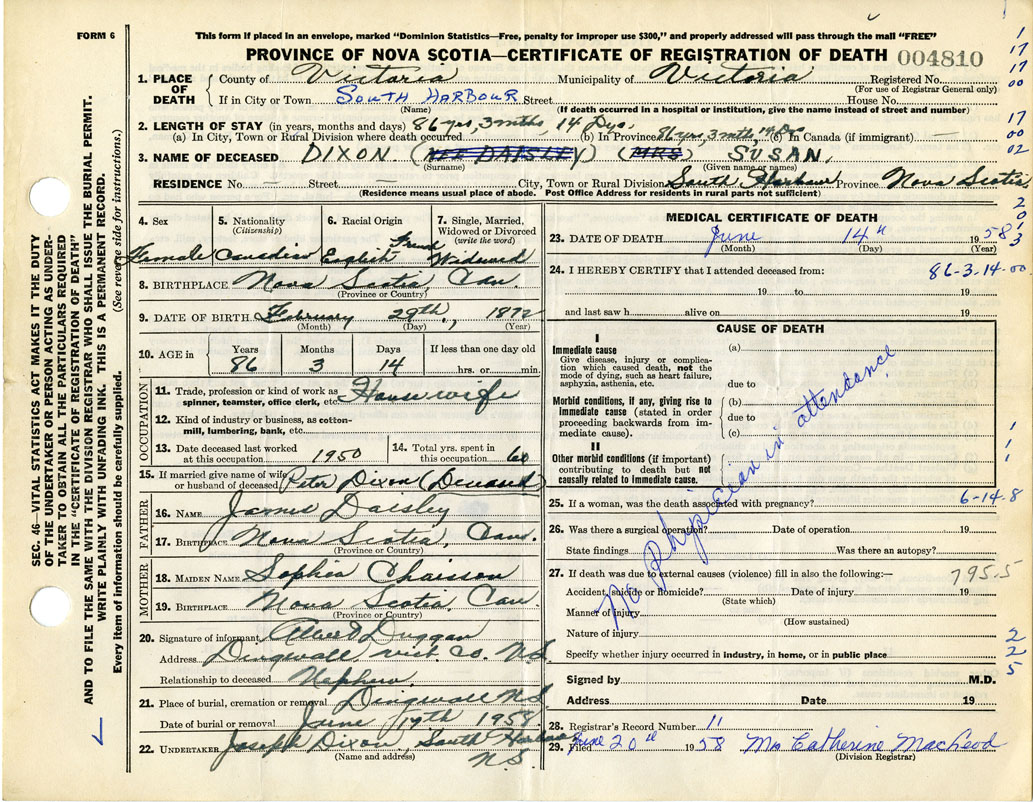 FORM 6
This form if placed in an envelope, marked "Dominion Statistics—Free, penalty for improper use $300," and properly addressed will pass through the mail "FREE"
PROVINCE OF NOVA SCOTIA—CERTIFICATE OF REGISTRATION OF DEATH 004810
1. PLACE OF DEATH
County of Victoria Municipality of Victoria Registered No.
(For use of Registrar General only)
If in City or Town SOUTH HARBOUR Street House No.
(Name) (If death occurred in a hospital or institution, give the name instead of street and number)
2. LENGTH OF STAY (in years, months and days) 86 yrs, 3 mths, 14 Dys.
(a) In City, Town or Rural Division where death occurred (b) In Province 86 yrs, 3 mth, 14 Dys (c) In Canada (if immigrant) —
3. NAME OF DECEASED DIXON. (NEE DAISLEY) (MRS) SUSAN.
(Surname) (Given name or names)
RESIDENCE No. — Street — City, Town or Rural Division South Harbour Province Nova Scotia
(Residence means usual place of abode. Post Office Address for residents in rural parts not sufficient)
4. Sex
Female
5. Nationality
(Citizenship)
Canadian
6. Racial Origin
English French
7. Single, Married, Widowed or Divorced
(write the word)
Widowed
8. BIRTHPLACE Nova Scotia, Can.
(Province or Country)
9. DATE OF BIRTH February 29th, 1872
(Month) (Day) (Year)
10. AGE in
Years Months Days If less than one day old
86 3 14 hrs. or min.
OCCUPATION
11. Trade, profession or kind of work as spinner, teamster, office clerk, etc. Housewife
12. Kind of industry or business, as cotton-mill, lumbering, bank, etc.
13. Date deceased last worked at this occupation 1950
14. Total yrs. spent in this occupation 60
15. If married give name of wife or husband of deceased Peter Dixon (Deceased)
FATHER
16. NAME James Daisley
17. BIRTHPLACE Nova Scotia, Can.
(Province or Country)
MOTHER
18. MAIDEN NAME Sophia Chaisson
19. BIRTHPLACE Nova Scotia, Can.
(Province or Country)
20. Signature of informant Albert Duggan
Address Dingwall, Vict. Co. N.S.
Relationship to deceased Nephew.
21. Place of burial, cremation or removal Dingwall N.S.
Date of burial or removal June 17th 1958.
22. UNDERTAKER Joseph Dixon, South Harbour
(Name and address) N.S.
MEDICAL CERTIFICATE OF DEATH
23. DATE OF DEATH June 14th 1958
(Month) (Day) (Year)
24. I HEREBY CERTIFY that I attended deceased from: 86-3-14-00
19 to 19
and last saw h alive on 19
CAUSE OF DEATH
I
Immediate cause
Give disease, injury or complication which caused death, not the mode of dying, such as heart failure, asphyxia, asthenia, etc.
(a)
due to
Morbid conditions, if any, giving rise to immediate cause (stated in order proceeding backwards from immediate cause).
(b)
due to
(c)
II
Other morbid conditions (if important) contributing to death but not causally related to immediate cause.
No physician in attendance
25. If a woman, was the death associated with pregnancy? 6-14-8
26. Was there a surgical operation? Date of operation 19
State findings Was there an autopsy?
27. If death was due to external causes (violence) fill in also the following:— 795.5
Accident, suicide or homicide? Date of injury 19
(State which)
Manner of injury
(How sustained)
Nature of injury
Specify whether injury occurred in industry, in home, or in public place
Signed by M.D.
Address Date 19
28. Registrar's Record Number 11
29. Filed June 20th 1958 Mrs Catherine MacLeod
(Division Registrar)
SEC. 46—VITAL STATISTICS ACT MAKES IT THE DUTY
OF THE UNDERTAKER OR PERSON ACTING AS UNDER-
TAKER TO OBTAIN ALL THE PARTICULARS REQUIRED
IN THE "CERTIFICATE OF REGISTRATION OF DEATH"
AND TO FILE THE SAME WITH THE DIVISION REGISTRAR WHO SHALL ISSUE THE BURIAL PERMIT.
WRITE PLAINLY WITH UNFADING INK. THIS IS A PERMANENT RECORD.
Every item of information should be carefully supplied. (See reverse side for instructions.)
1
17
17
00
17
00
02
2
0
1
3
1
1
1
2
2
5